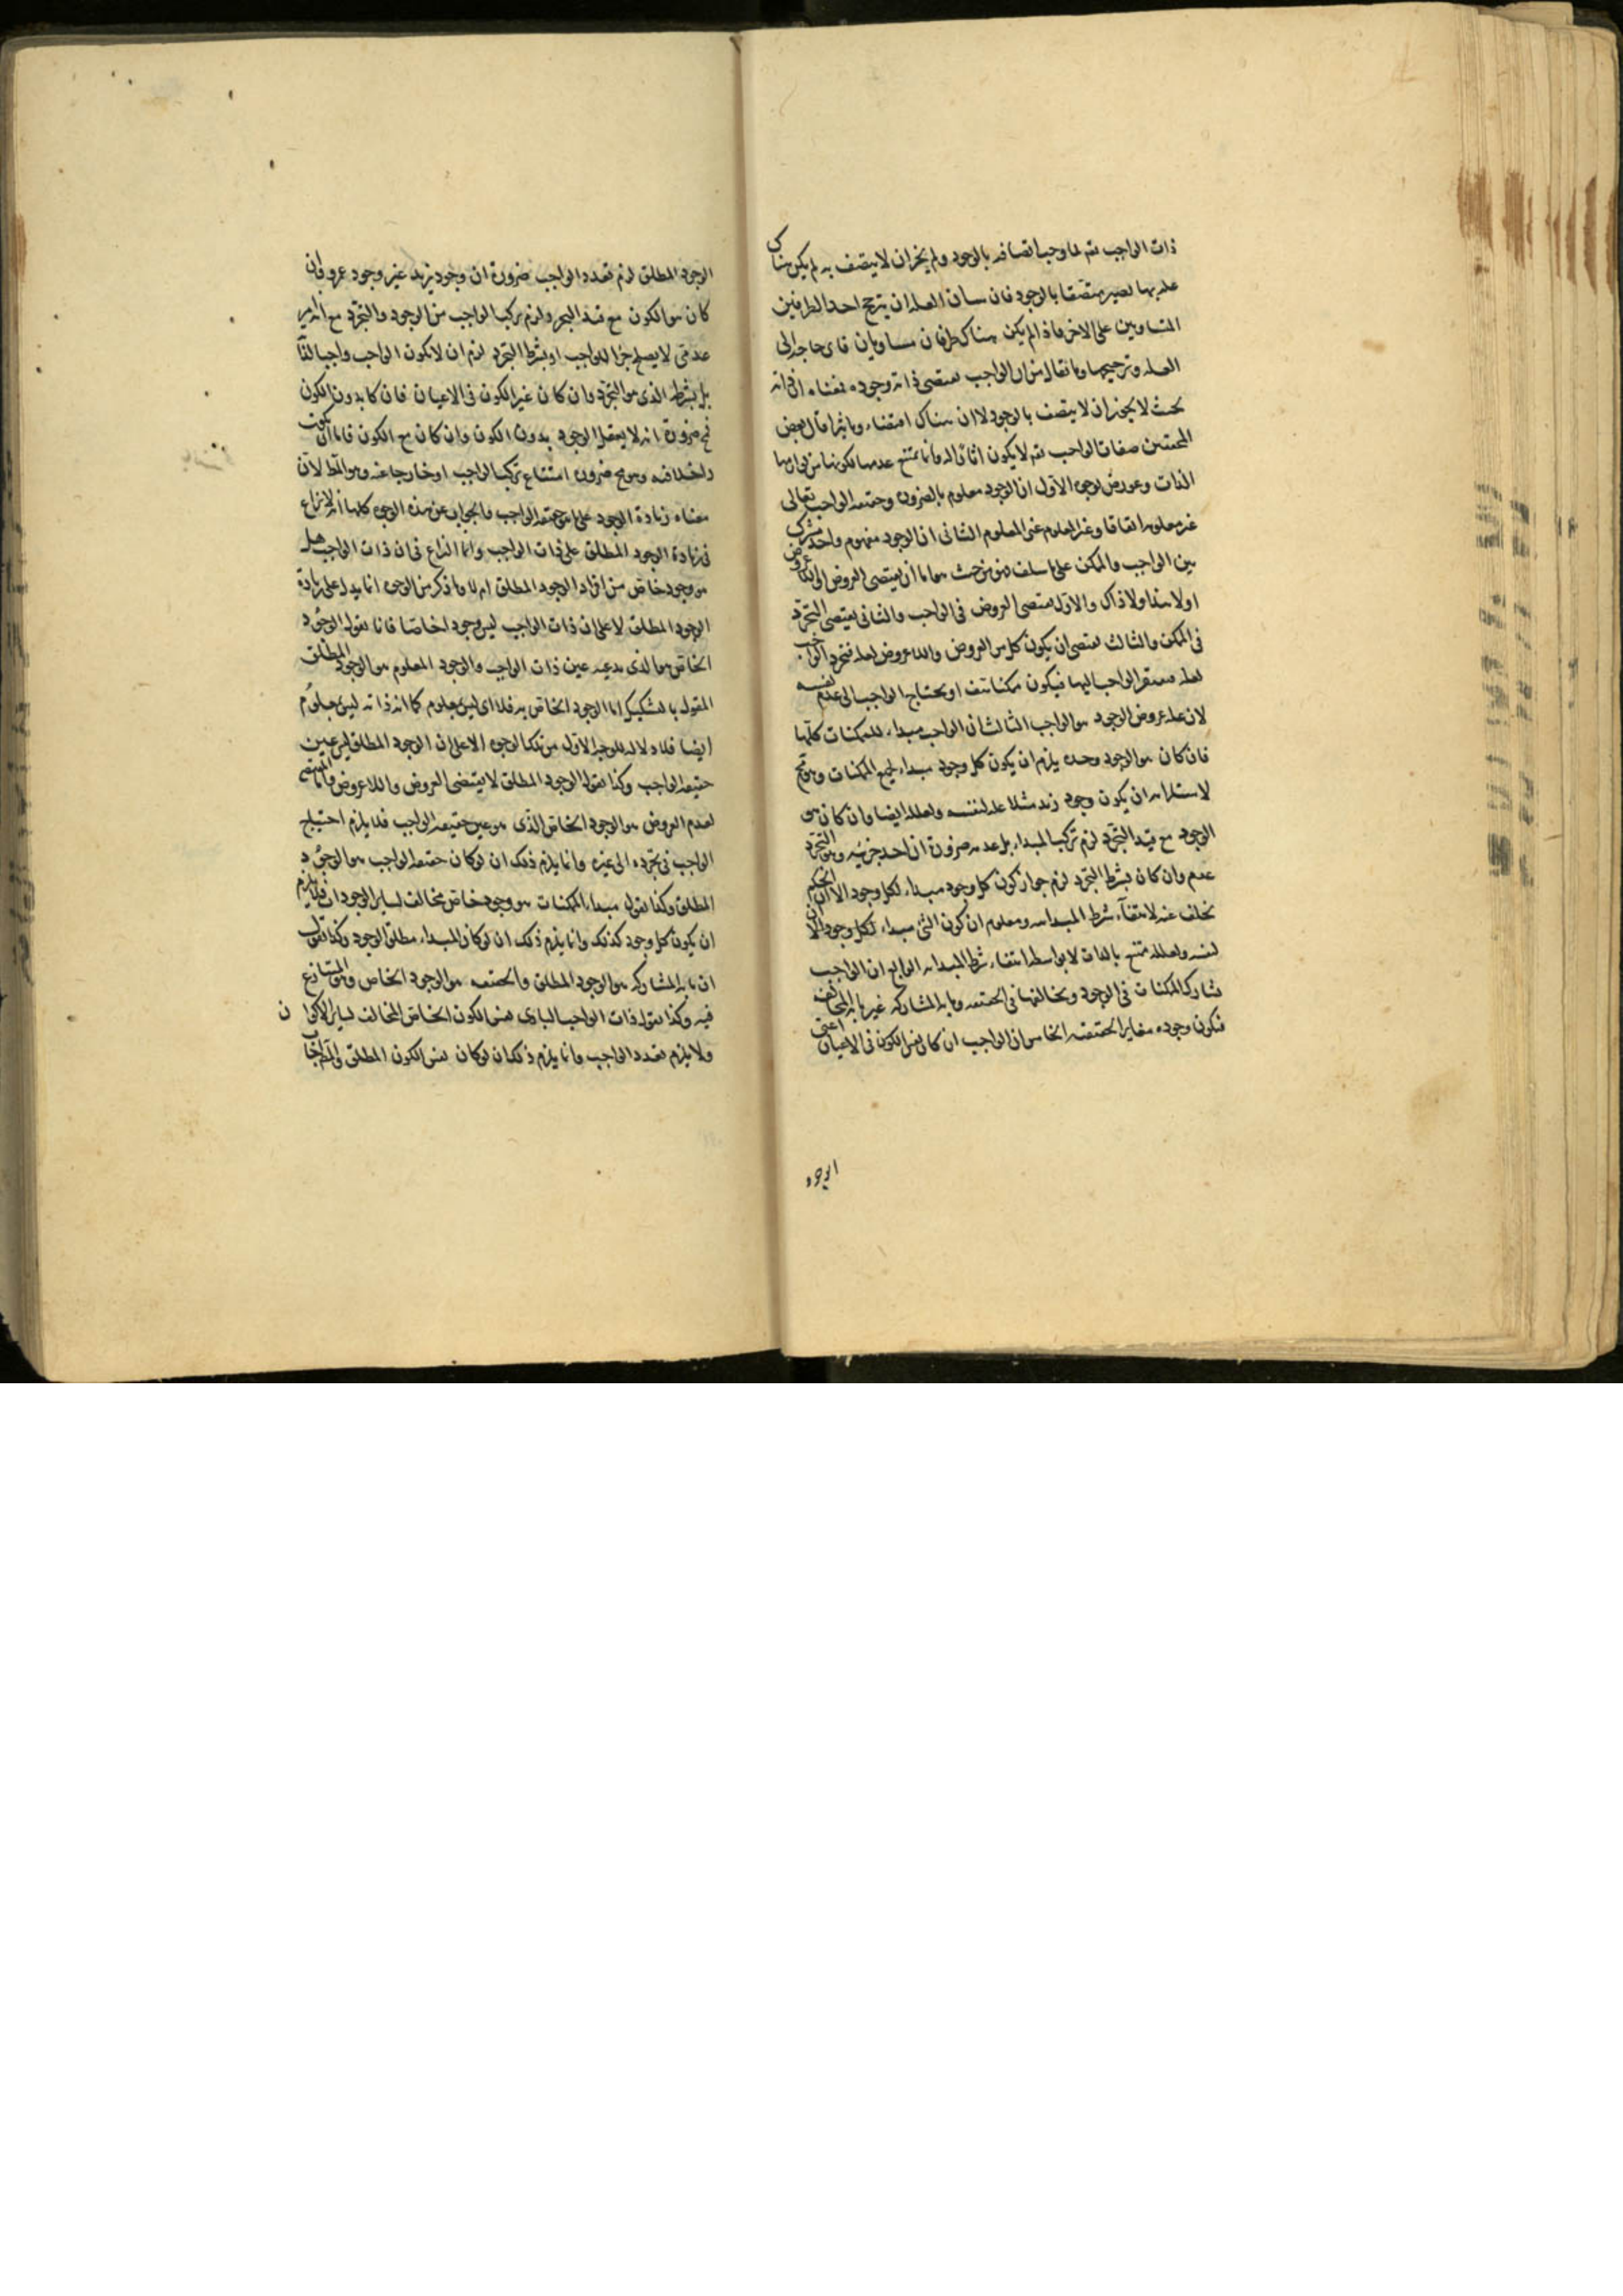 ذات الواجب تعم لما وجب اتصافه بالوجود ولم يجز ان لا يتصف به لم يكن هناك
علة بها يصير متصفا بالوجود فان شان العلة ان يترجح احد الطرفين
المتساويين على الاخر فاذا لم يكن هناك طرفان متساويان فاى حاجة الى
العلة وترجيحها وما يقال من ان الواجب يقتضى ذاته وجوده معناه ان ذاته
بحيث لا يجوز ان لا يتصف بالوجود لا ان هناك اقتضاء وتاثيرا قال بعض
المحققين صفات الواجب تعم لا يكون اثارا له وانما يمتنع عدمها لكونها من لوازمها
الذات وعورض بوجوه الاول ان الوجود معلوم بالضرورة وحقيقة الواجب تعالى
غير معلومة اتفاقا وغير المعلوم غير المعلوم الثانى ان الوجود مفهوم واحد مشترك
بين الواجب والممكن على ما سلف فمن حيث هو اما ان يقتضى العروض او اللاعروض
اولا هذا ولا ذاك والاول يقتضى العروض فى الواجب والثانى يقتضى التجرد
فى الممكن والثالث يقتضى ان يكون كل من العروض واللاعروض لعلة فتجرد الواجب
لعلة فيفتقر الواجب اليها فيكون ممكنا هف او يحتاج الواجب الى عدم نفسه
لان علة عروض الوجود هو الواجب الثالث ان الواجب مبداء للممكنات كلها
فان كان هو الوجود وحده يلزم ان يكون كل وجود مبداء لجميع الممكنات وهو مح
لاستلزامه ان يكون وجود زيد مثلا علة لنفسه ولعلله ايضا وان كان هو
الوجود مع قيد التجرد لزم تركب المبداء بل عدمه ضرورة ان احد جزئيه وهو التجرد
عدم وان كان بشرط التجرد لزم جواز كون كل وجود مبداء لكل وجود الا ان الحكم
تخلف عنه لانتفاء شرط المبدائية ومعلوم ان كون الشئ مبداء لكل وجود الا ان
لنفسه ولعلله ممتنع بالذات لا بواسطة انتفاء شرط المبدائية الرابع ان الواجب
تشارك الممكنات فى الوجود ويخالفها فى الحقيقة وما به المشاركة غير ما به المخالفة
فيكون وجوده مغايرا لحقيقته الخامس ان الواجب ان كان نفس الكون فى الاعيان اعنى
الوجود
الوجود المطلق لزم تعدد الواجب ضرورة ان وجود زيد غير وجود عمرو وان
كان هو الكون مع قيد التجرد لزم تركب الواجب من الوجود والتجرد مع انه امر
عدمى لا يصلح جزا للواجب او بشرط التجرد لزم ان لا يكون الواجب واجبا لذاته
بل بشرطه الذى هو التجرد وان كان غير الكون فى الاعيان فان كان بدون الكون
فمح ضرورة انه لا يعقل الوجود بدون الكون وان كان مع الكون فاما ان يكون
داخلا فيه وهو مح ضرورة امتناع تركب الواجب او خارجا عنه وهو المط لان
معناه زيادة الوجود على ما هو حقيقة الواجب والجواب عن هذه الوجوه كلها انه لا نزاع
فى زيادة الوجود المطلق على ذات الواجب وانما النزاع فى ان ذات الواجب هل
هو وجود خاص من افراد الوجود المطلق ام لا وما ذكر من الوجوه انما يدل على زيادة
الوجود المطلق لا على ان ذات الواجب ليس وجودا خاصا فانا نقول الوجود
الخاص هو الذى ندعيه عين ذات الواجب والوجود المعلوم هو الوجود المطلق
المقول بالتشكيك اما الوجود الخاص به فلا اى ليس بمعلوم كما ان ذاته ليس بمعلوم
ايضا فلا دلالة للوجه الاول من تلك الوجوه الا على ان الوجود المطلق ليس عين
حقيقة الواجب وكذا نقول الوجود المطلق لا يقتضى العروض واللاعروض وانما المقتضى
لعدم العروض هو الوجود الخاص الذى هو عين حقيقة الواجب فلا يلزم احتياج
الواجب فى تجرده الى غيره وانما يلزم ذلك ان لو كان حقيقة الواجب هو الوجود
المطلق وكذا نقول مبداء الممكنات هو وجود خاص مخالف لساير الوجودات فلا يلزم
ان يكون كل وجود كذلك وانما يلزم ذلك ان لو كان المبداء مطلق الوجود وكذا نقول
ان ما به المشاركة هو الوجود المطلق والحقيقة هو الوجود الخاص وهو المتنازع
فيه وكذا نقول ذات الواجب البارى نفس الكون الخاص المخالف لساير الاكوان
ولا يلزم تعدد الواجب وانما يلزم ذلك ان لو كان نفس الكون المطلق